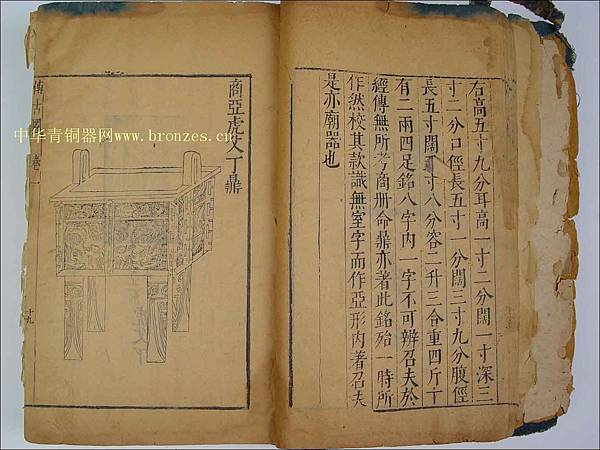 右高五寸九分耳高一寸二分闊一寸深三
寸二分口徑長五寸一分闊三寸九分腹徑
長五寸闊 寸八分容二升三合重四斤十
有二兩四足銘八字內一字不可辨召夫於
經傳無所考商冊命鼎亦著此銘殆一時所
作然校其款識無室字而作亞形內著召夫
是亦廟器也
商亞虎父丁鼎
博古圖 卷一
十九
中华青铜器网www.bronzes.cn